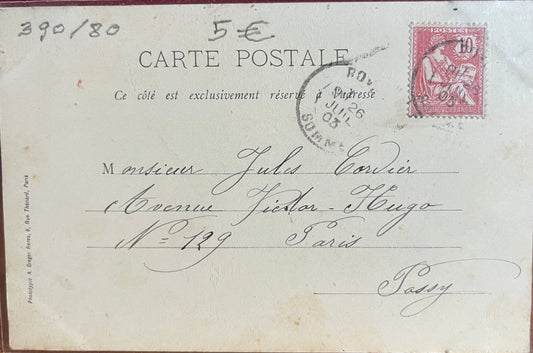 390/80 5 €
CARTE POSTALE
Ce côté est exclusivement réservé à l'adresse
POSTES
10
ROYE
26
JUIL
03
SOMME
Monsieur Jules Cordier
Avenue Victor-Hugo
N° 129 Paris
Passy
Phototypie A. Breger frères, 9, Rue Thénard, Paris